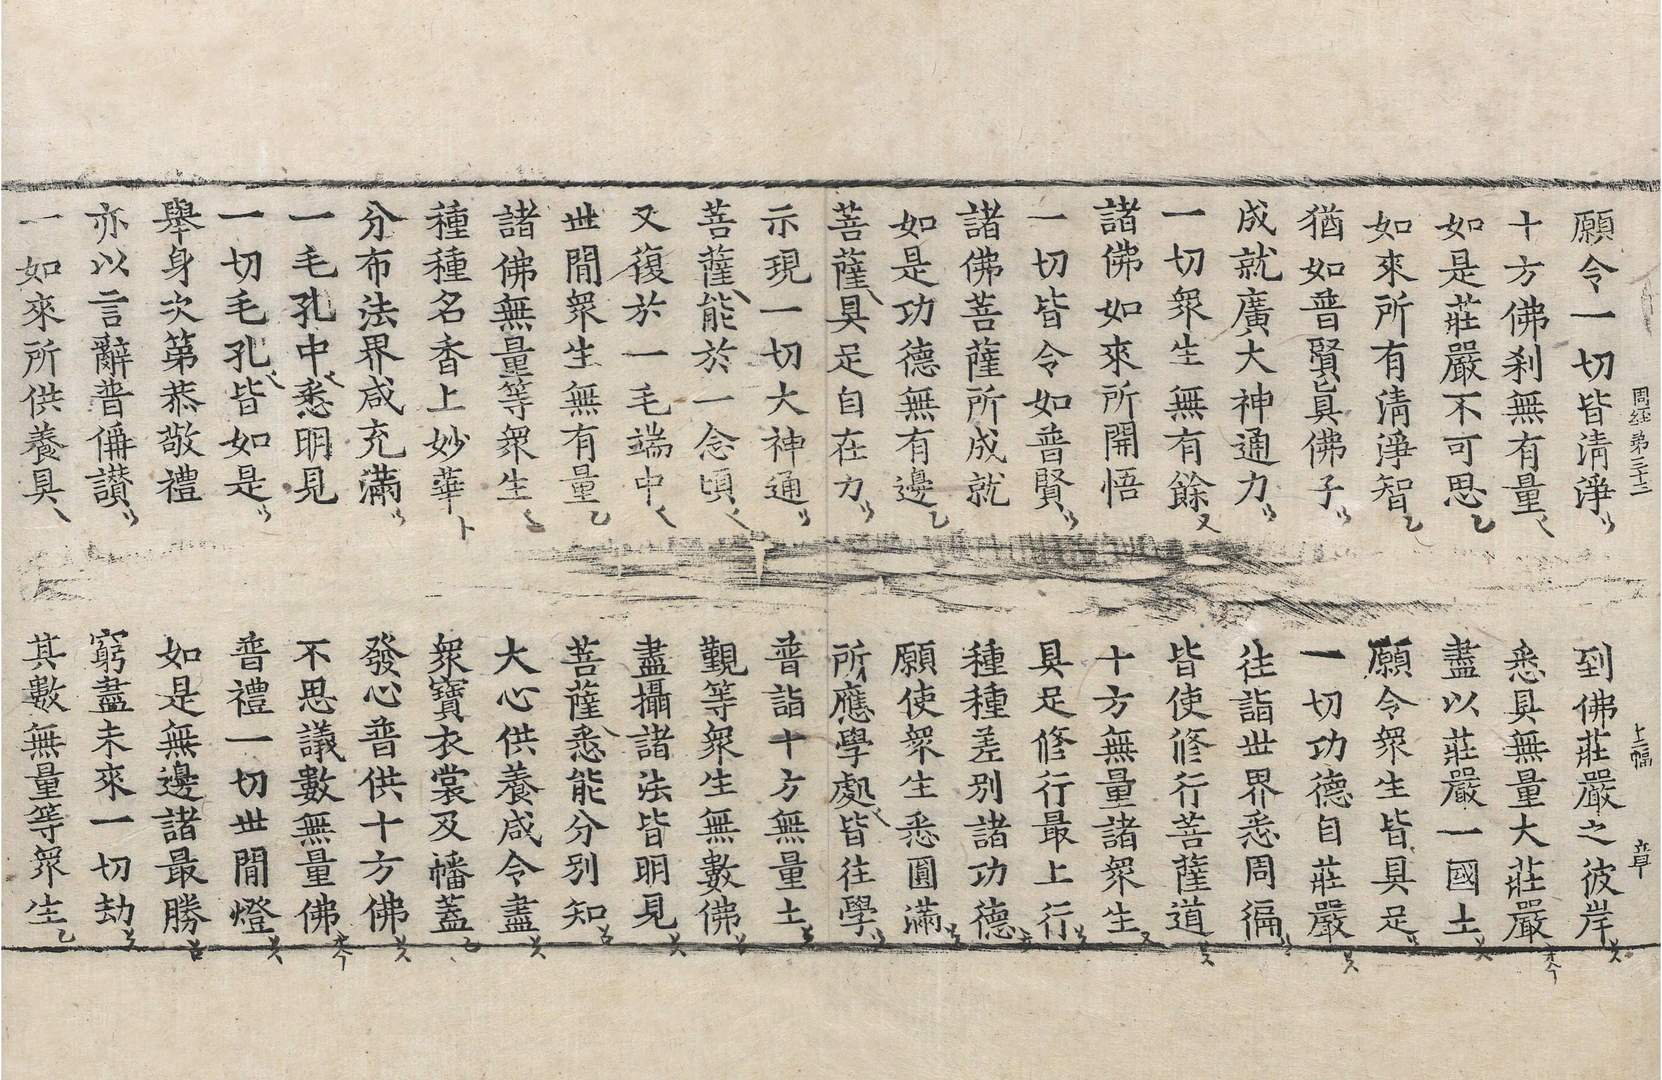 周經第　上二幅　章
願令一切皆清淨　到佛莊嚴之彼岸
十方佛刹無有量　悉具無量大莊嚴
如是莊嚴不可思　盡以莊嚴一國土
如來所有清淨智　願令衆生皆具足
猶如普賢眞佛子　一切功德自莊嚴
成就廣大神通力　往詣世界悉周徧
一切衆生無有餘　皆使修行菩薩道
諸佛如來所開悟　十方無量諸衆生
一切皆令如普賢　具足修行最上行
諸佛菩薩所成就　種種差別諸功德
如是功德無有邊　願使衆生悉圓滿
菩薩具足自在力　所應學處皆往學
示現一切大神通　普詣十方無量土
菩薩能於一念頃　觀等衆生無數佛
又復於一毛端中　盡攝諸法皆明見
世閒衆生無有量　菩薩悉能分別知
諸佛無量等衆生　大心供養咸令盡
種種名香上妙華　衆寶衣裳及幡蓋
分布法界咸充滿　發心普供十方佛
一毛孔中悉明見　不思議數無量佛
一切毛孔皆如是　普禮一切世閒燈
舉身次第恭敬禮　如是無邊諸最勝
亦以言辭普偁讃　窮盡未來一切劫
一如來所供養具　其數無量等衆生